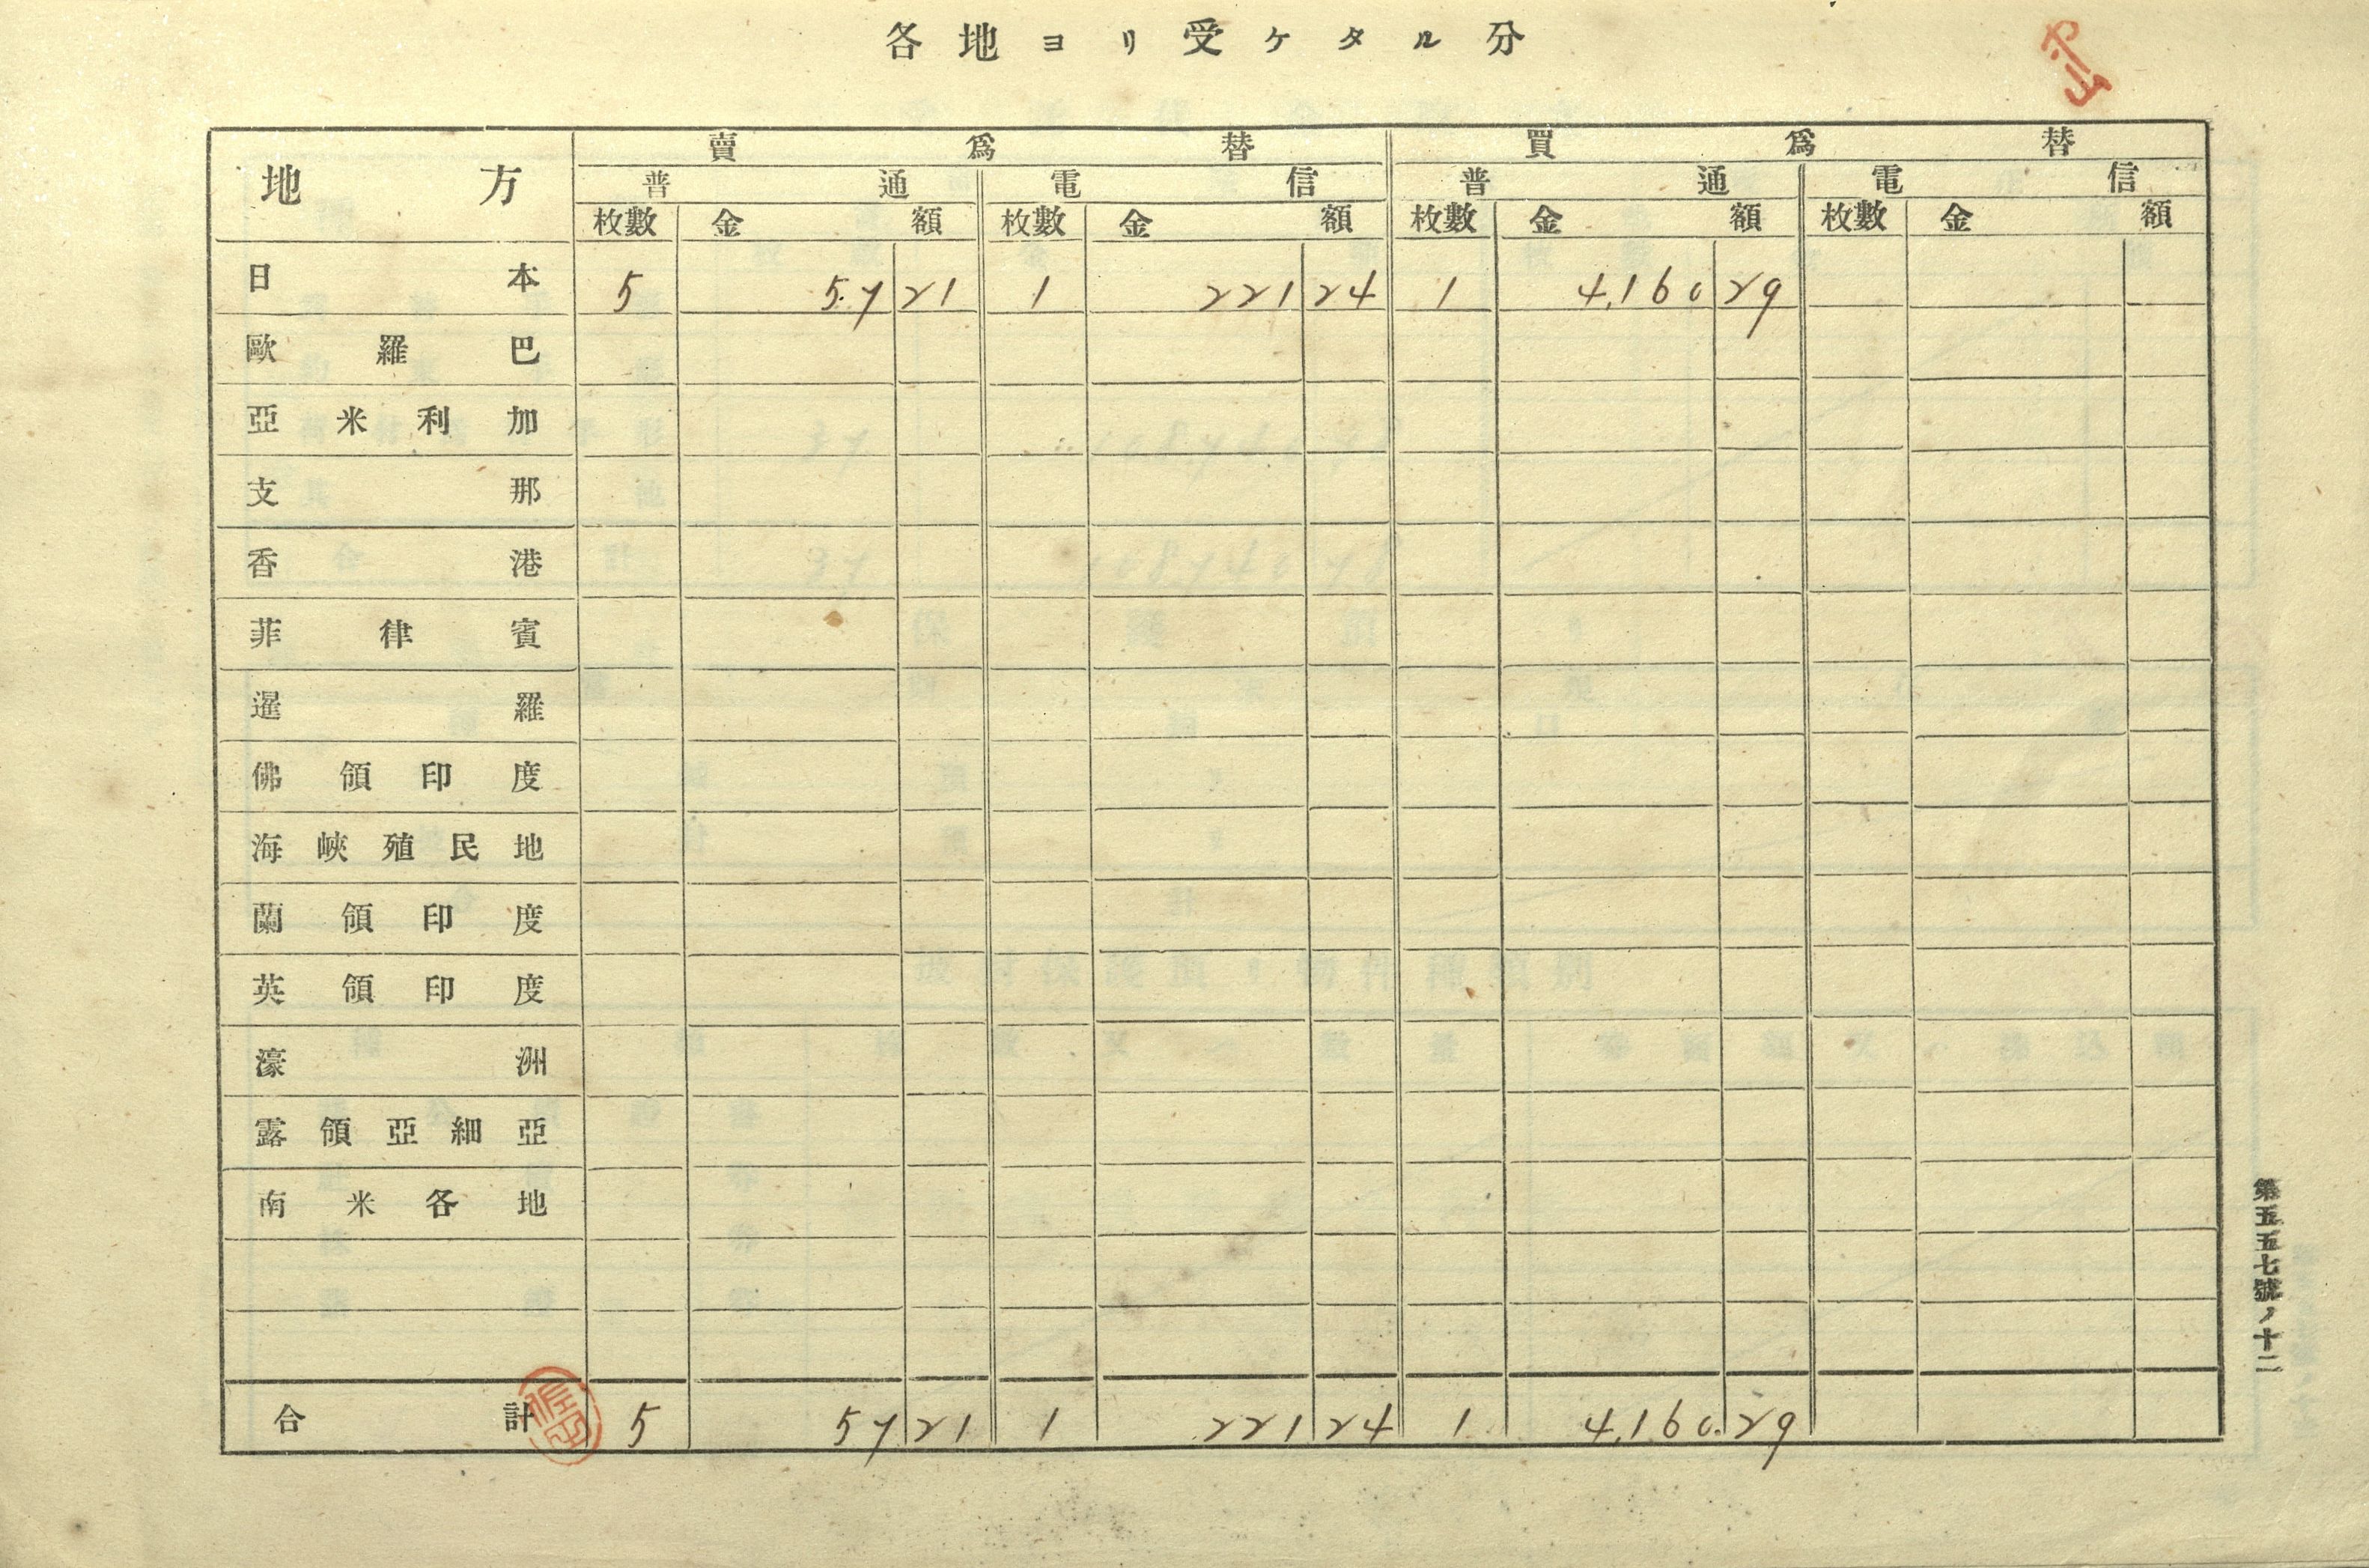 各地ヨリ受ケタル分
地方 賣爲替 買爲替
普通 電信 普通 電信
枚數 金額 枚數 金額 枚數 金額 枚數 金額
日本 5 57 21 1 221 24 1 4,160 29
歐羅巴
亞米利加
支那
香港
菲律賓
暹羅
佛領印度
海峽殖民地
蘭領印度
英領印度
濠洲
露領亞細亞
南米各地
合計 5 57 21 1 221 24 1 4,160 29
第五五七號ノ十二